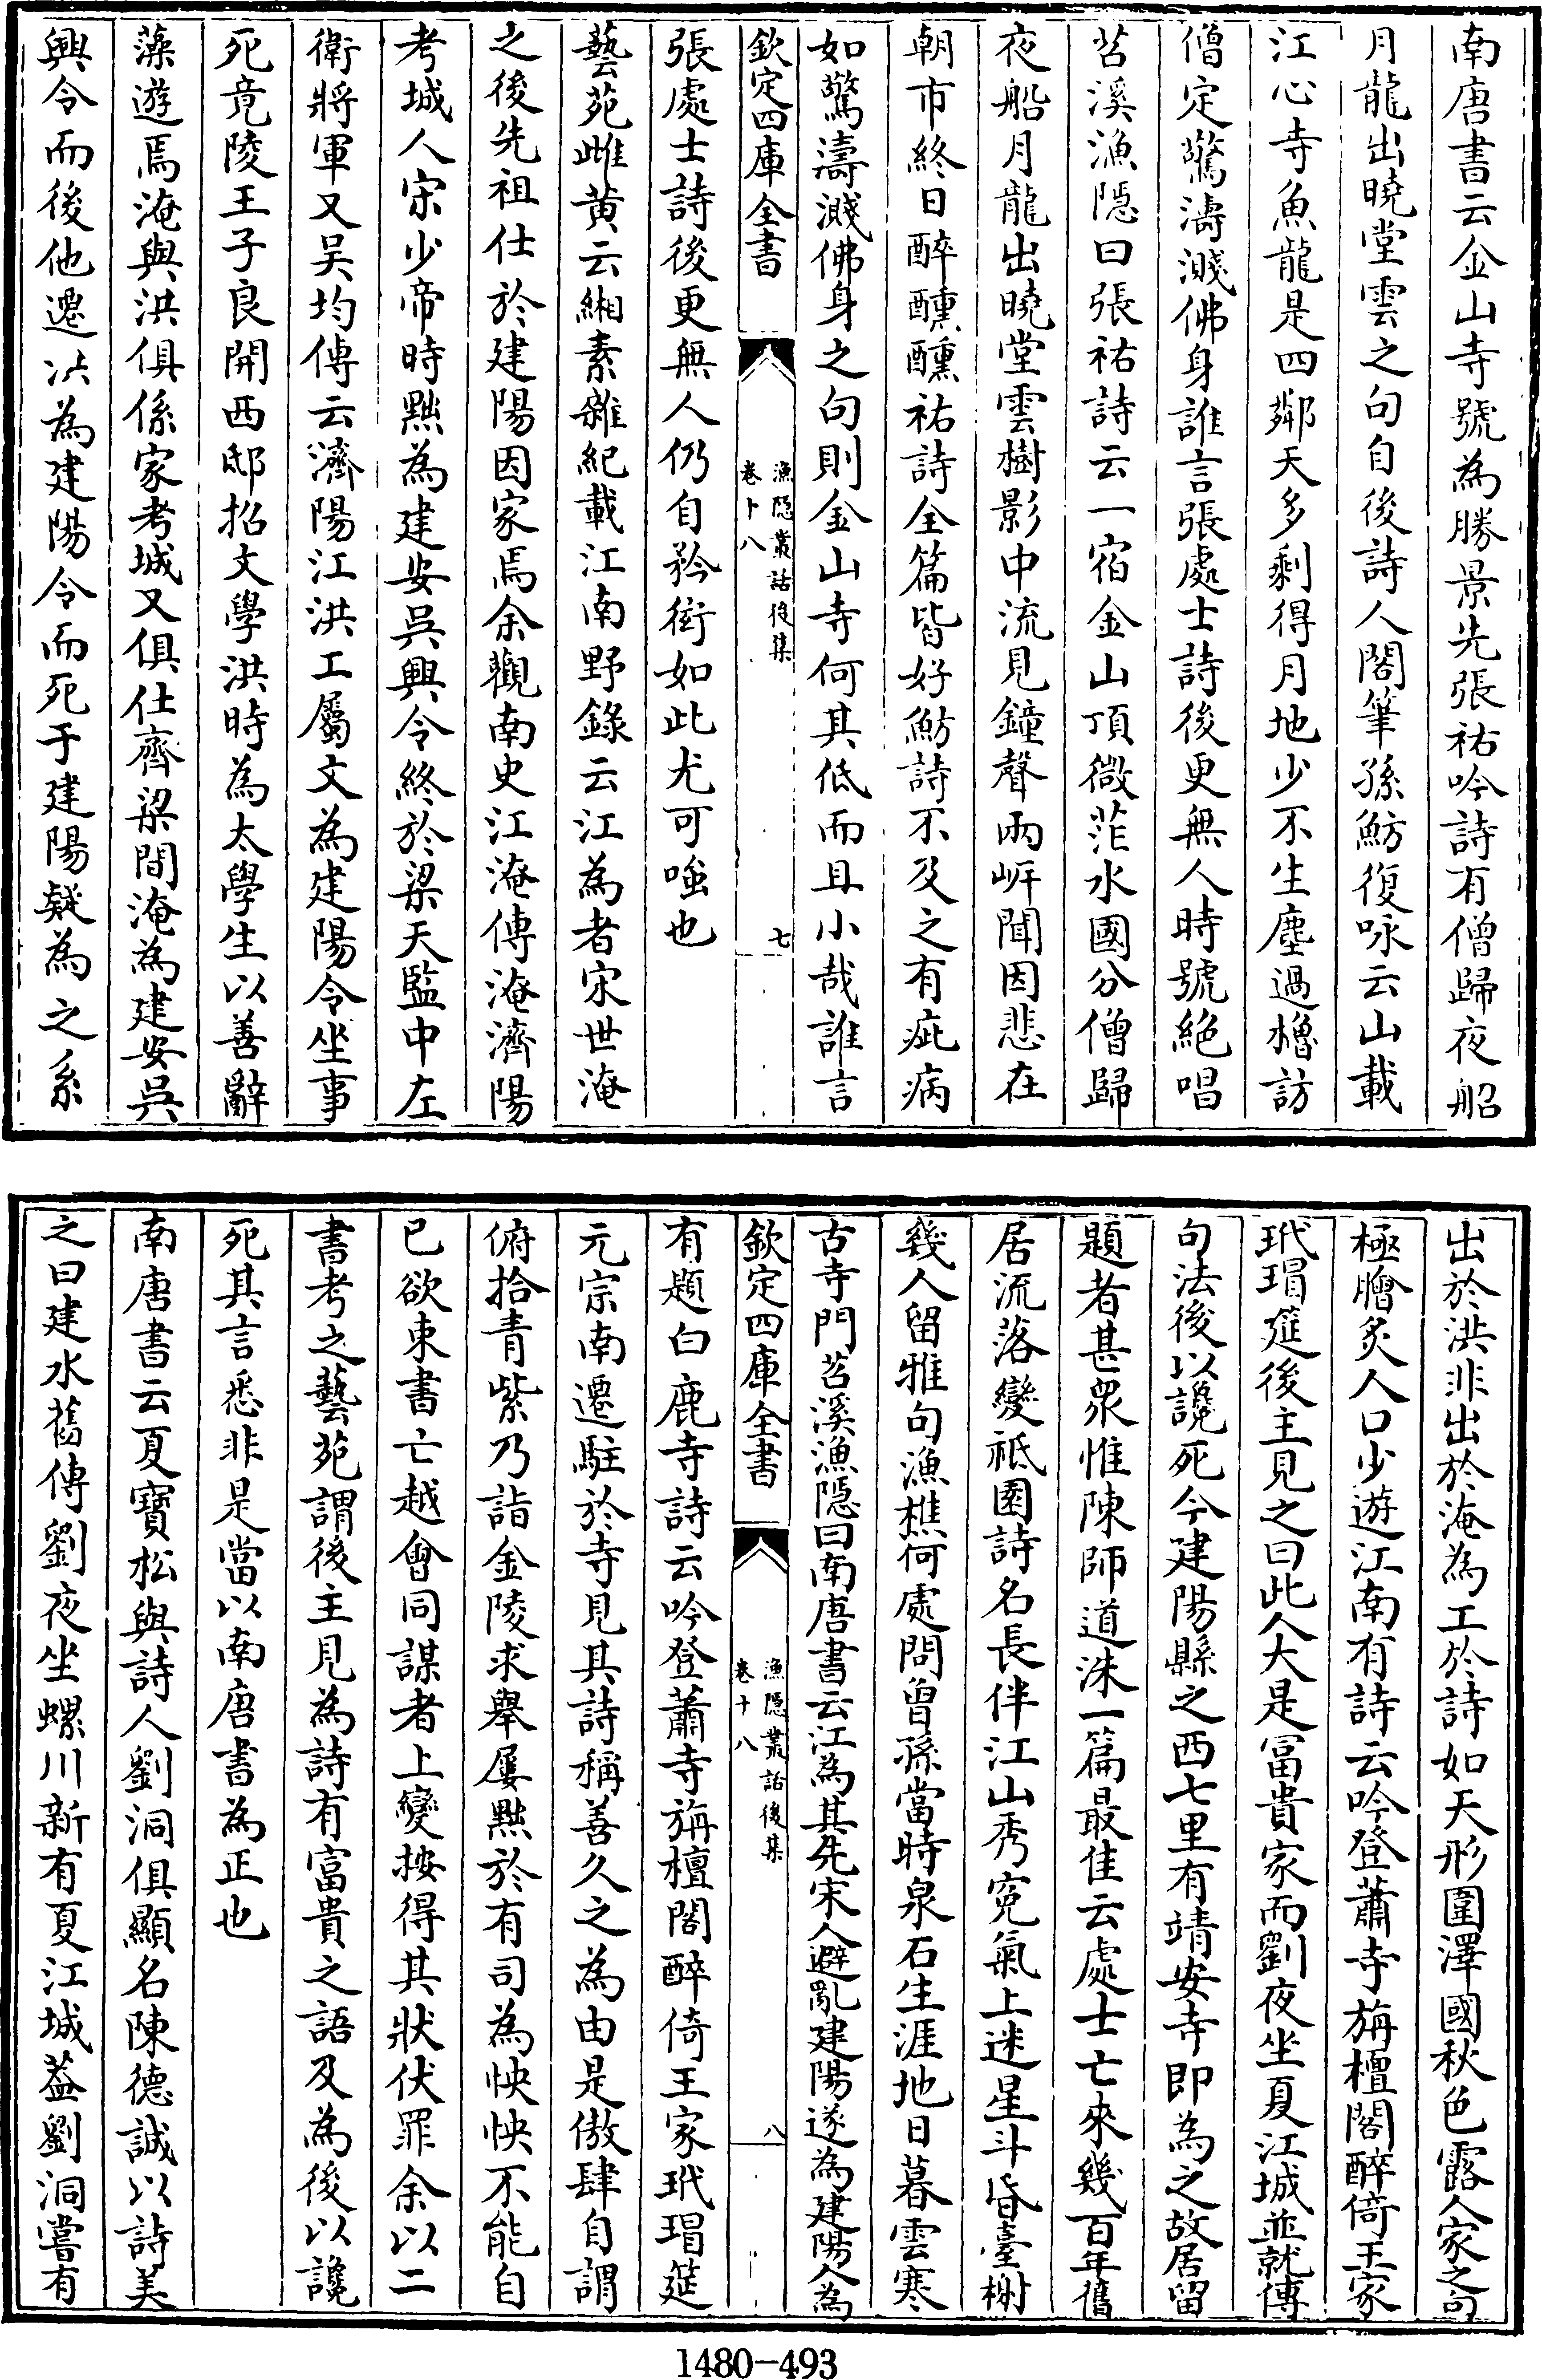 南唐書云金山寺號為勝景先張祐吟詩有僧歸夜船
月龍出曉堂雲之句自後詩人閣筆孫魴復咏云山載
江心寺魚龍是四鄰天多剩得月地少不生塵過櫓訪
僧定驚濤濺佛身誰言張處士詩後更無人時號絕唱
苕溪漁隱曰張祐詩云一宿金山頂微茫水國分僧歸
夜船月龍出曉堂雲樹影中流見鐘聲兩岍聞因悲在
朝市終日醉醺醺祐詩全篇皆好魴詩不及之有疵病
如驚濤濺佛身之句則金山寺何其低而且小哉誰言
欽定四庫全書
漁隱叢話後集
卷十八
七
張處士詩後更無人仍自矜衒如此尤可嗤也
藝苑雌黄云緗素雜紀載江南野錄云江為者宋世淹
之後先祖仕於建陽因家焉余觀南史江淹傳淹濟陽
考城人宋少帝時黜為建安吳興令終於梁天監中左
衛將軍又吳均傳云濟陽江洪工屬文為建陽令坐事
死竟陵王子良開西邸招文學洪時為太學生以善辭
藻遊焉淹與洪俱係家考城又俱仕齊梁間淹為建安吳
興令而後他遷洪為建陽令而死于建陽疑為之系
出於洪非出於淹為工於詩如天形圍澤國秋色露人家之句
極膾炙人口少遊江南有詩云吟登蕭寺旃檀閣醉倚王家
玳瑁筵後主見之曰此人大是冨貴家而劉夜坐夏江城並就傳
句法後以讒死今建陽縣之西七里有靖安寺即為之故居留
題者甚衆惟陳師道洙一篇最佳云處士亡來幾百年舊
居流落變祇園詩名長伴江山秀寃氣上迷星斗昏臺榭
幾人留雅句漁樵何處問曾孫當時泉石生涯地日暮雲寒
古寺門苕溪漁隱曰南唐書云江為其先宋人避亂建陽遂為建陽人為
欽定四庫全書
漁隱叢話後集
卷十八
八
有題白鹿寺詩云吟登蕭寺旃檀閣醉倚王家玳瑁筵
元宗南遷駐於寺見其詩稱善久之為由是傲肆自謂
俯拾青紫乃詣金陵求舉屢黜於有司為怏怏不能自
已欲束書亡越會同謀者上變按得其狀伏罪余以二
書考之藝苑謂後主見為詩有富貴之語及為後以讒
死其言悉非是當以南唐書為正也
南唐書云夏寶松與詩人劉洞俱顯名陳德誠以詩美
之曰建水舊傳劉夜坐螺川新有夏江城葢劉洞嘗有
1480-493